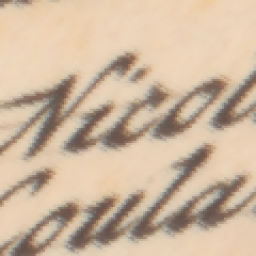 Nicol
Coula